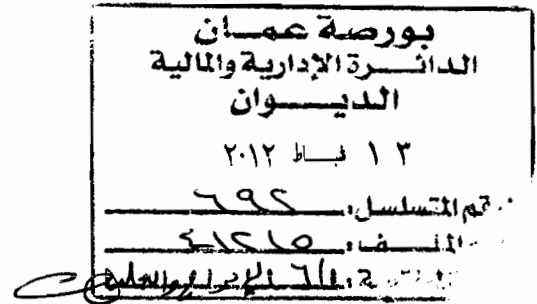 بورصة عمان
الدائرة الإدارية والمالية
الديوان
١٣ شباط ٢٠١٢
رقم المتسلسل: ٦٩٢
الملف: ٤١٢١٥